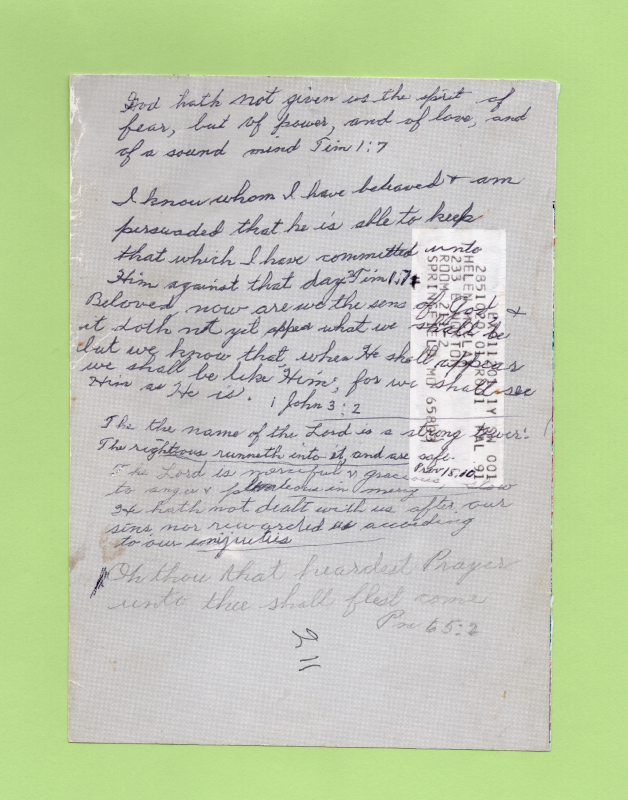 God hath not given us the spirit of
fear, but of power, and of love, and
of a sound mind Tim 1:7
I know whom I have believed + am
perswaded that he is able to keep
that which I have committed unto
Him against that day. Tim 1:
Beloved now are we the sons of God &
it doth not yet appear what we shall be
but we know that when He shall appear
we shall be like Him, for we shall see
Him as He is. 1 John 3:2
The the name of the Lord is a strong tower.
The righteous runneth into it, and are safe.
Prov 18.10
The Lord is merciful & gracious slow
to anger & in mercy
He hath not dealt with us after our
sins nor rewarded us according
to our iniquities
Oh thou that heardest Prayer
unto thee shall flesh come
Psa 65:2
211
HELEN
233 E
ROOM 2
SPRINGFIELD MO 658